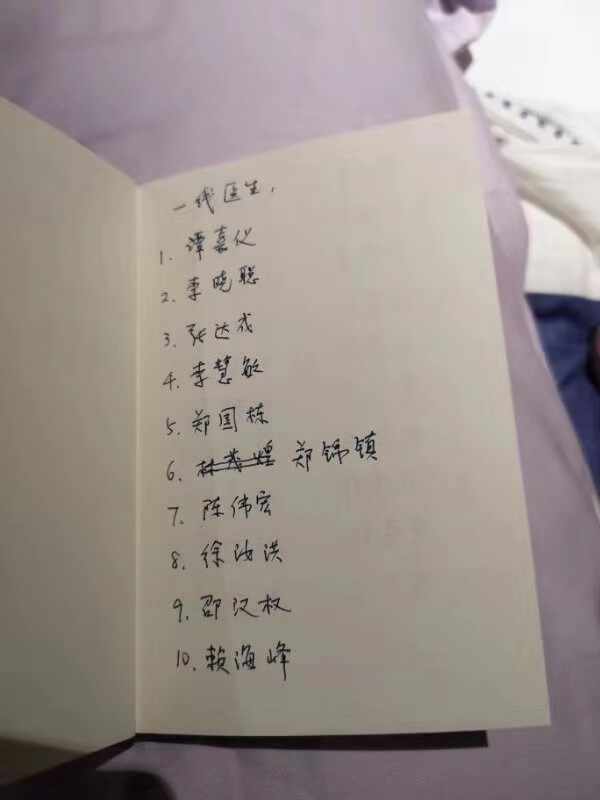 一线医生,
1. 谭嘉仪
2. 李晓聪
3. 张达成
4. 李慧敏
5. 郑国栋
6. 林茂煌 郑锦镇
7. 陈伟宏
8. 徐汝洪
9. 邵汉权
10. 赖海峰